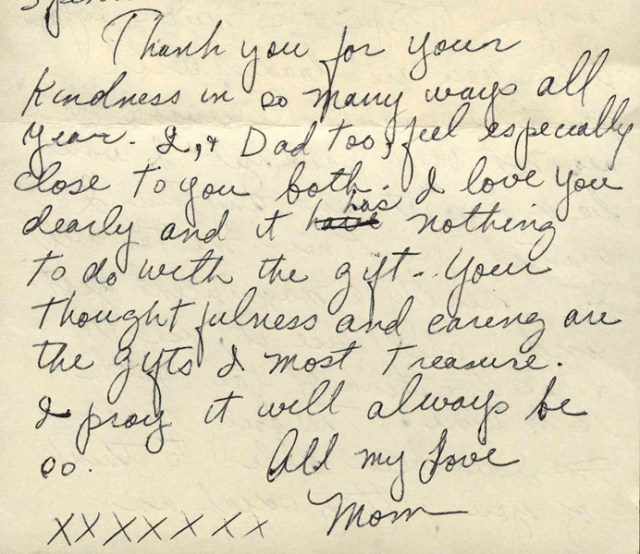 Thank you for your
kindness in so many ways all
year. I, & Dad too, feel especially
close to you both. I love you
dearly and it ~~have~~ has nothing
to do with the gift.. Your
thoughtfulness and caring are
the gifts I most treasure.
I pray it will always be
so. All my love
XXXXXXX Mom